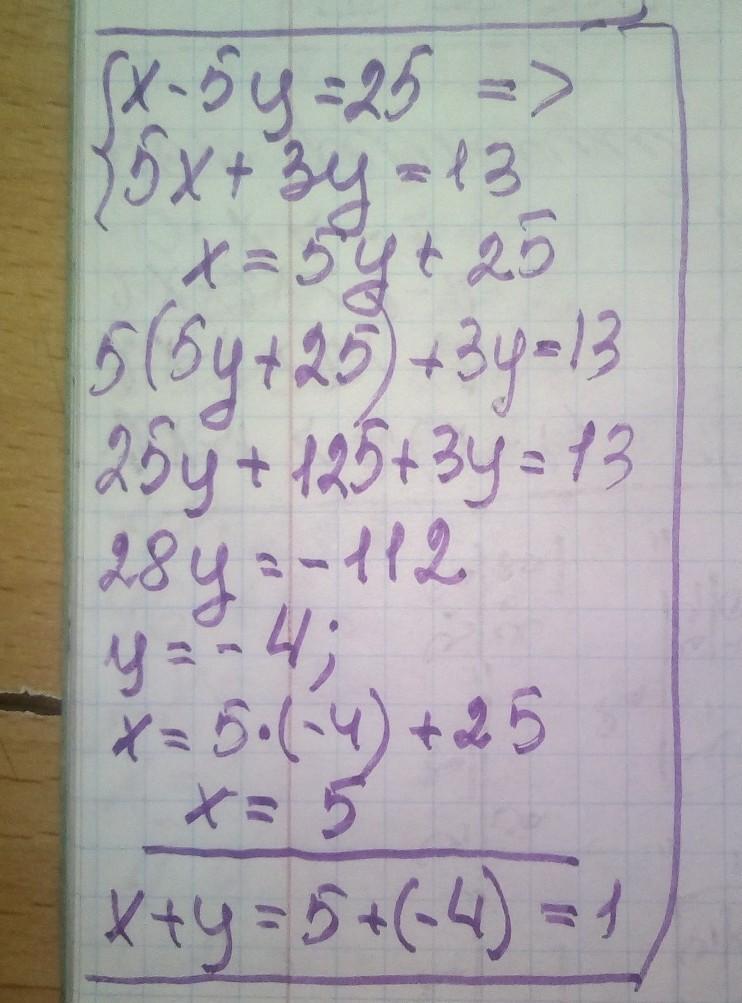 {x-5y=25 =>
5x+3y=13
x=5y+25
5(5y+25)+3y=13
25y+125+3y=13
28y=-112
y=-4;
x=5·(-4)+25
x=5
x+y=5+(-4)=1